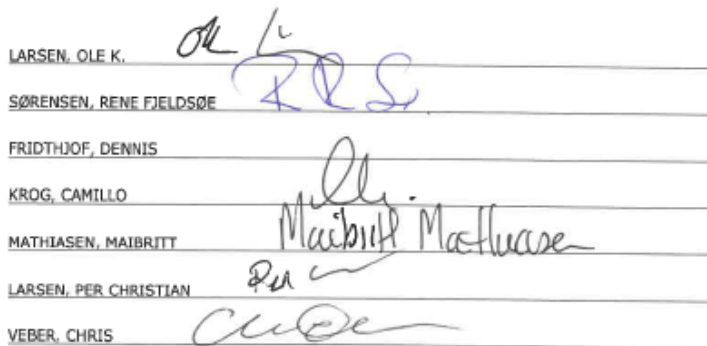 LARSEN, OLE K.
SØRENSEN, RENE FJELDSØE
FRIDTHJOF, DENNIS
KROG, CAMILLO
MATHIASEN, MAIBRITT Maibritt Mathiasen
LARSEN, PER CHRISTIAN Per
VEBER, CHRIS